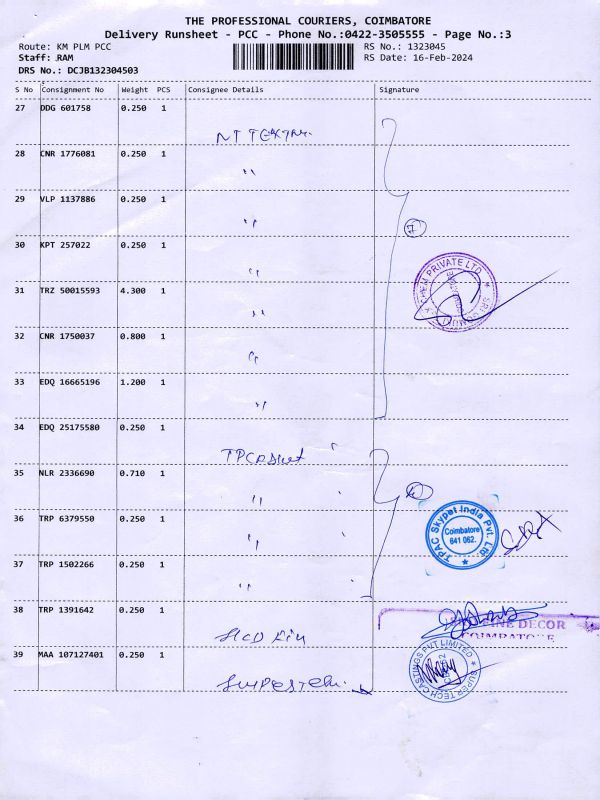 THE PROFESSIONAL COURIERS, COIMBATORE
Delivery Runsheet - PCC - Phone No.:0422-3505555 - Page No.:3
Route: KM PLM PCC RS No.: 1323045
Staff: RAM RS Date: 16-Feb-2024
DRS No.: DCJB132304503
S No Consignment No Weight PCS Consignee Details Signature
27 DDG 601758 0.250 1
28 CNR 1776081 0.250 1 "
29 VLP 1137886 0.250 1 "
7
30 KPT 257022 0.250 1 "
CHEM PRIVATE LTD
31 TRZ 50015593 4.300 1 "
32 CNR 1750037 0.800 1 "
33 EDQ 16665196 1.200 1 "
34 EDQ 25175580 0.250 1
35 NLR 2336690 0.710 1 "
36 TRP 6379550 0.250 1 "
TPAC Skypet India Pvt. Ltd.
Coimbatore
641 062.
37 TRP 1502266 0.250 1 "
38 TRP 1391642 0.250 1
DECOR
COIMBATORE
39 MAA 107127401 0.250 1
SUPER TECH CASTINGS PVT LIMITED